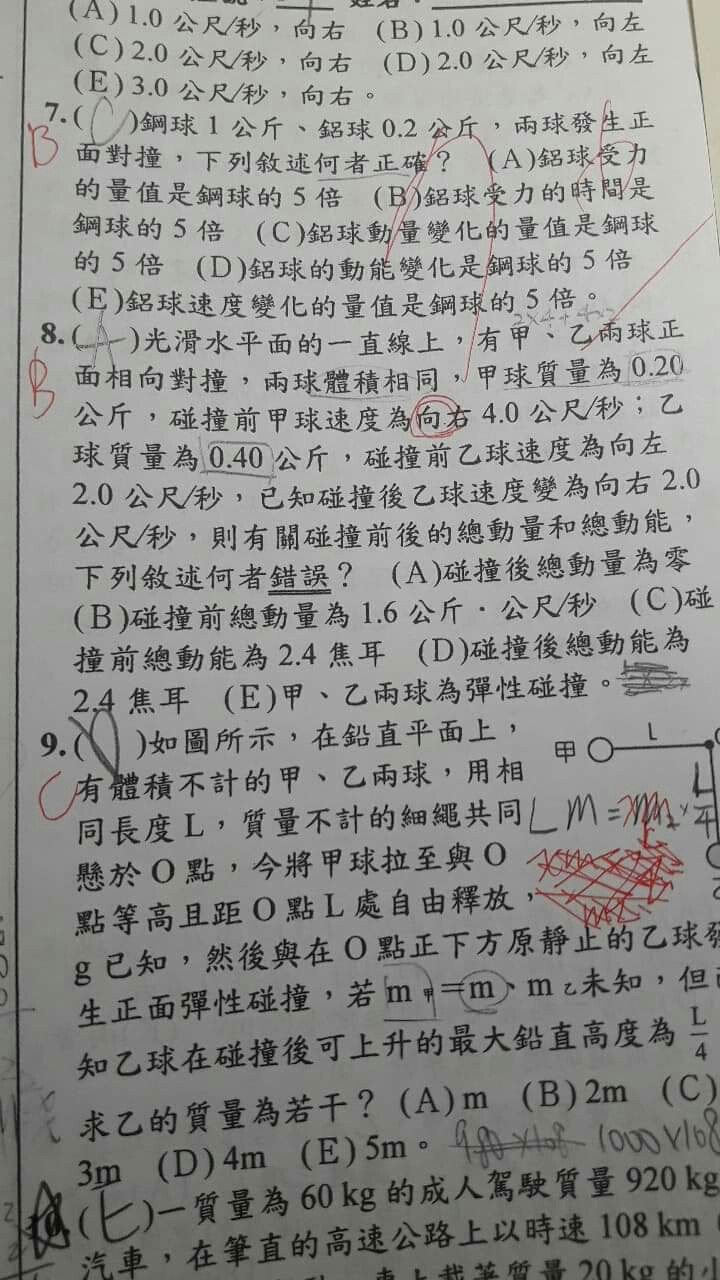 (A) 1.0 公尺/秒，向右 (B) 1.0 公尺/秒，向左
(C) 2.0 公尺/秒，向右 (D) 2.0 公尺/秒，向左
(E) 3.0 公尺/秒，向右。
7.( C )鋼球 1 公斤、鋁球 0.2 公斤，兩球發生正
B
面對撞，下列敘述何者正確？ (A)鋁球受力
的量值是鋼球的 5 倍 (B)鋁球受力的時間是
鋼球的 5 倍 (C)鋁球動量變化的量值是鋼球
的 5 倍 (D)鋁球的動能變化是鋼球的 5 倍
(E)鋁球速度變化的量值是鋼球的 5 倍。
8.( A )光滑水平面的一直線上，有甲、乙兩球正
B
面相向對撞，兩球體積相同，甲球質量為 0.20
公斤，碰撞前甲球速度為向右 4.0 公尺/秒；乙
球質量為 0.40 公斤，碰撞前乙球速度為向左
2.0 公尺/秒，已知碰撞後乙球速度變為向右 2.0
公尺/秒，則有關碰撞前後的總動量和總動能，
下列敘述何者錯誤？ (A)碰撞後總動量為零
(B)碰撞前總動量為 1.6 公斤．公尺/秒 (C)碰
撞前總動能為 2.4 焦耳 (D)碰撞後總動能為
2.4 焦耳 (E)甲、乙兩球為彈性碰撞。
9.( )如圖所示，在鉛直平面上，
甲 L
C
有體積不計的甲、乙兩球，用相
L
同長度 L，質量不計的細繩共同
懸於 O 點，今將甲球拉至與 O
點等高且距 O 點 L 處自由釋放，
g 已知，然後與在 O 點正下方原靜止的乙球發
生正面彈性碰撞，若 m甲＝m、m乙未知，但已
知乙球在碰撞後可上升的最大鉛直高度為 L/4
求乙的質量為若干？ (A) m (B) 2m (C)
3m (D) 4m (E) 5m。
1000×108
( )一質量為 60 kg 的成人駕駛質量 920 kg
汽車，在筆直的高速公路上以時速 108 km
質量 20 kg 的小